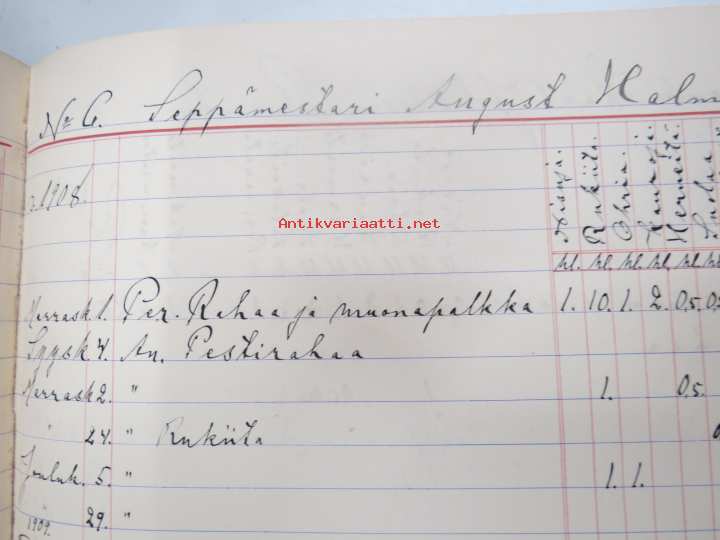 No 6. Seppämestari August Halm
Nisuja. Rukiita. Ohria. Kauroja. Herneitä.
v. 1908.
Antikvariaatti.net
hl. hl. hl. hl. hl.
Marrask 1. Per. Rahaa ja muonapalkka 1. 10. 1. 2. 0.5.
Syysk 4. An. Pestirahaa
Marrask 2. " 1. 0.5.
" 24. " Rukiita
Jouluk. 5. " 1. 1.
29. "
1909.